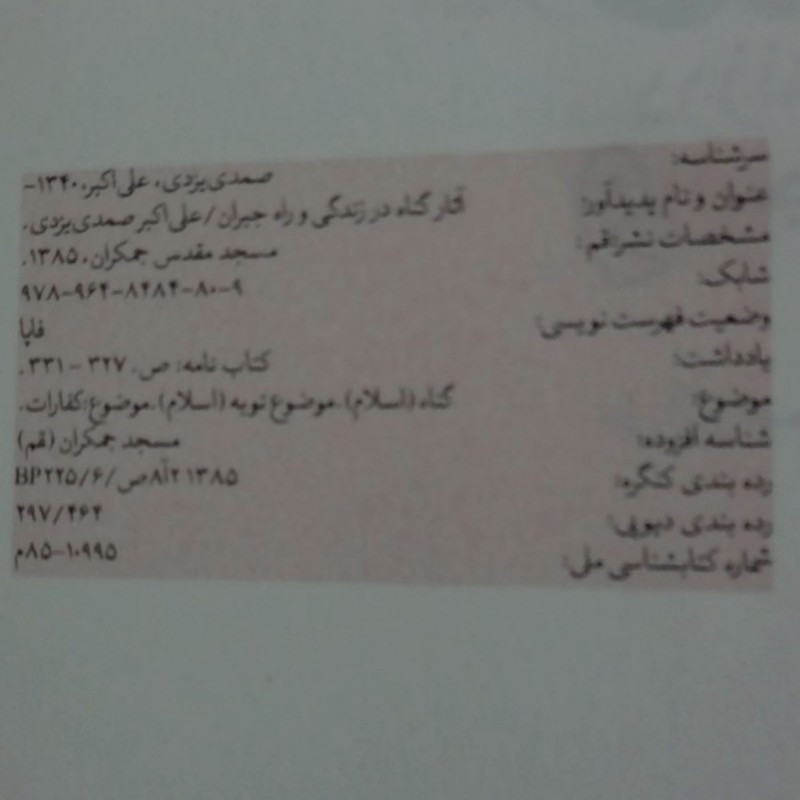 سرشناسه: صمدی یزدی، علی اکبر، ۱۳۴۰-
عنوان و نام پدیدآور: آثار گناه در زندگی و راه جبران / علی اکبر صمدی یزدی.
مشخصات نشر: قم: مسجد مقدس جمکران، ۱۳۸۵.
شابک: ۹۷۸-۹۶۴-۸۴۸۴-۸۰-۹
وضعیت فهرست نویسی: فاپا
یادداشت: کتاب نامه: ص. ۳۲۷ - ۳۳۱.
موضوع: گناه (اسلام). موضوع توبه (اسلام). موضوع: کفارات.
شناسه افزوده: مسجد جمکران (قم)
رده بندی کنگره: BP۲۲۵/۶/ص۸آ۲ ۱۳۸۵
رده بندی دیویی: ۲۹۷/۴۶۴
شماره کتابشناسی ملی: ۱۰۹۹۵-۸۵م